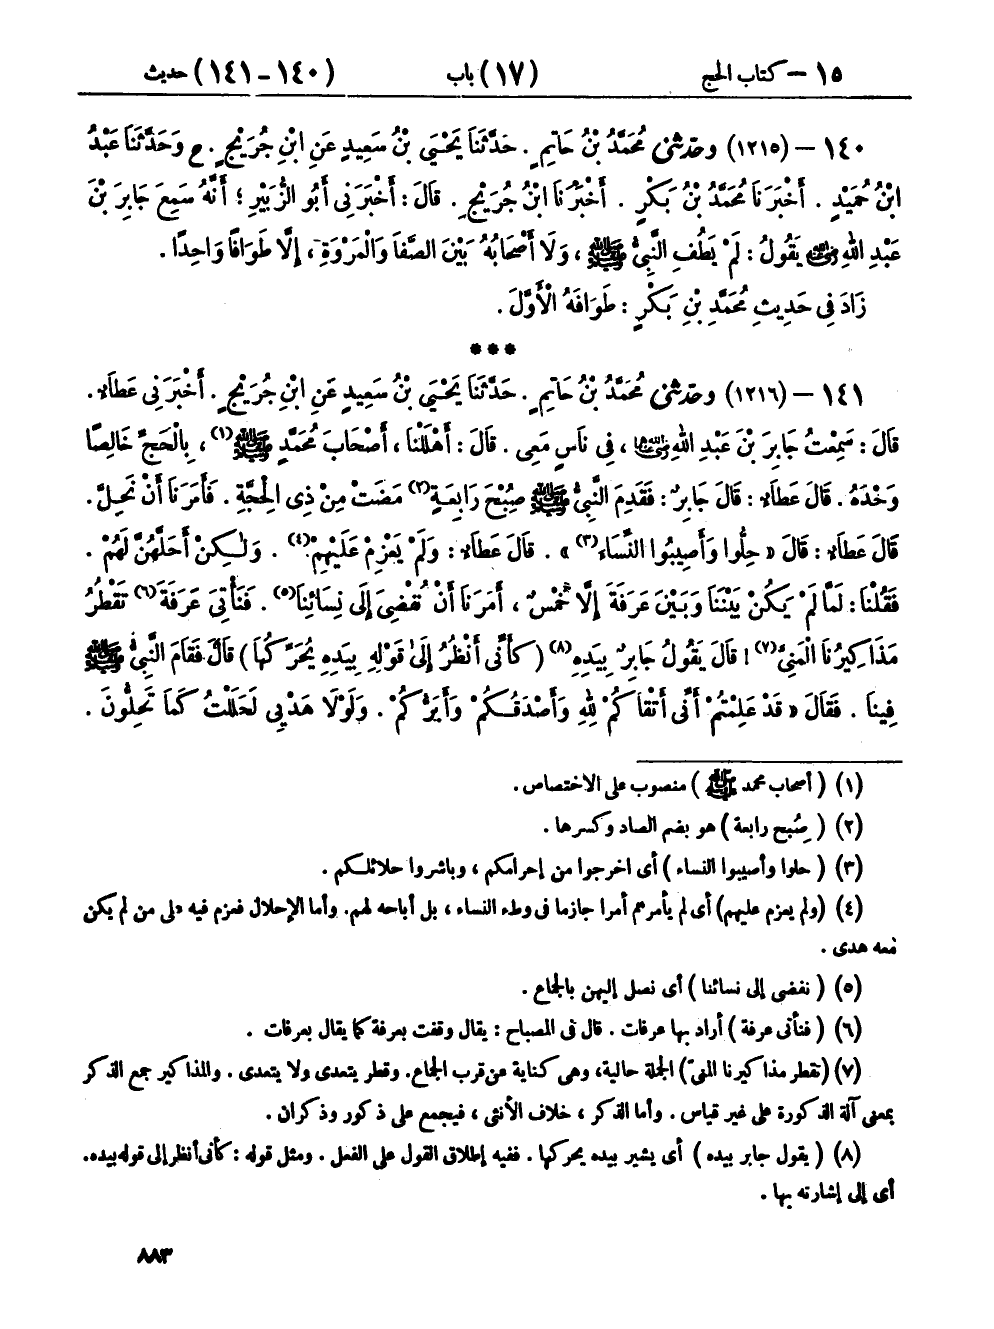 ١٥ – كتاب الحج (١٧) باب (١٤٠-١٤١) حديث
١٤٠ – (١٢١٥) وحدثنى مُحَمَّدُ بْنُ حَاتِمٍ. حَدَّثَنَا يَحْيَىٰ بْنُ سَعِيدٍ عَنِ ابْنِ جُرَيْجٍ. ح وَحَدَّثَنَا عَبْدُ
ابْنُ حُمَيْدٍ. أَخْبَرَنَا مُحَمَّدُ بْنُ بَكْرٍ. أَخْبَرَنَا ابْنُ جُرَيْجٍ. قَالَ: أَخْبَرَنِى أَبُو الزُّبَيْرِ؛ أَنَّهُ سَمِعَ جَابِرَ بْنَ
عَبْدِ اللهِ رضي الله عنه يَقُولُ: لَمْ يَطُفِ النَّبِىُّ ﷺ، وَلَا أَصْحَابُهُ بَيْنَ الصَّفَا وَالْمَرْوَةِ، إِلَّا طَوَافًا وَاحِدًا.
زَادَ فِى حَدِيثِ مُحَمَّدِ بْنِ بَكْرٍ: طَوَافَهُ الْأَوَّلَ.
***
١٤١ – (١٢١٦) وحدثنى مُحَمَّدُ بْنُ حَاتِمٍ. حَدَّثَنَا يَحْيَىٰ بْنُ سَعِيدٍ عَنِ ابْنِ جُرَيْجٍ. أَخْبَرَنِى عَطَاءٌ.
قَالَ: سَمِعْتُ جَابِرَ بْنَ عَبْدِ اللهِ رضي الله عنهما، فِى نَاسٍ مَعِى. قَالَ: أَهْلَلْنَا، أَصْحَابَ مُحَمَّدٍ ﷺ(١)، بِالْحَجِّ خَالِصًا
وَحْدَهُ. قَالَ عَطَاءٌ: قَالَ جَابِرٌ: فَقَدِمَ النَّبِىُّ ﷺ صُبْحَ رَابِعَةٍ(٢) مَضَتْ مِنْ ذِى الْحِجَّةِ. فَأَمَرَنَا أَنْ نَحِلَّ.
قَالَ عَطَاءٌ: قَالَ « حِلُّوا وَأَصِيبُوا النِّسَاءَ(٣) ». قَالَ عَطَاءٌ: وَلَمْ يَعْزِمْ عَلَيْهِمْ(٤). وَلَٰكِنْ أَحَلَّهُنَّ لَهُمْ.
فَقُلْنَا: لَمَّا لَمْ يَكُنْ بَيْنَنَا وَبَيْنَ عَرَفَةَ إِلَّا خَمْسٌ، أَمَرَنَا أَنْ نُفْضِىَ إِلَى نِسَائِنَا(٥). فَنَأْتِىَ عَرَفَةَ(٦) تَقْطُرُ
مَذَاكِيرُنَا الْمَنِىَّ(٧)! قَالَ يَقُولُ جَابِرٌ بِيَدِهِ(٨) (كَأَنِّى أَنْظُرُ إِلَىٰ قَوْلِهِ بِيَدِهِ يُحَرِّكُهَا) قَالَ فَقَامَ النَّبِىُّ ﷺ
فِينَا. فَقَالَ « قَدْ عَلِمْتُمْ أَنِّى أَتْقَاكُمْ لِلهِ وَأَصْدَقُكُمْ وَأَبَرُّكُمْ. وَلَوْلَا هَدْيِى لَحَلَلْتُ كَمَا تَحِلُّونَ.
(١) (أصحاب محمد ﷺ) منصوب على الاختصاص.
(٢) (صُبح رابعة) هو بضم الصاد وكسرها.
(٣) (حلوا وأصيبوا النساء) أى اخرجوا من إحرامكم، وباشروا حلائلكم.
(٤) (ولم يعزم عليهم) أى لم يأمرهم أمرا جازما فى وطء النساء، بل أباحه لهم. وأما الإحلال فعزم فيه على من لم يكن
معه هدى.
(٥) (نفضى إلى نسائنا) أى نصل إليهن بالجماع.
(٦) (فنأتى عرفة) أراد بها عرفات. قال فى المصباح: يقال وقفت بعرفة كما يقال بعرفات.
(٧) (تقطر مذاكيرنا المنىّ) الجملة حالية، وهى كناية عن قرب الجماع. وقطر يتعدى ولا يتعدى. والمذاكير جمع الذكر
بمعنى آلة الذكورة على غير قياس. وأما الذكر، خلاف الأنثى، فيجمع على ذكور وذكران.
(٨) (يقول جابر بيده) أى يشير بيده يحركها. ففيه إطلاق القول على الفعل. ومثل قوله: كأنى أنظر إلى قوله بيده.
أى إلى إشارته بها.
٨٨٣